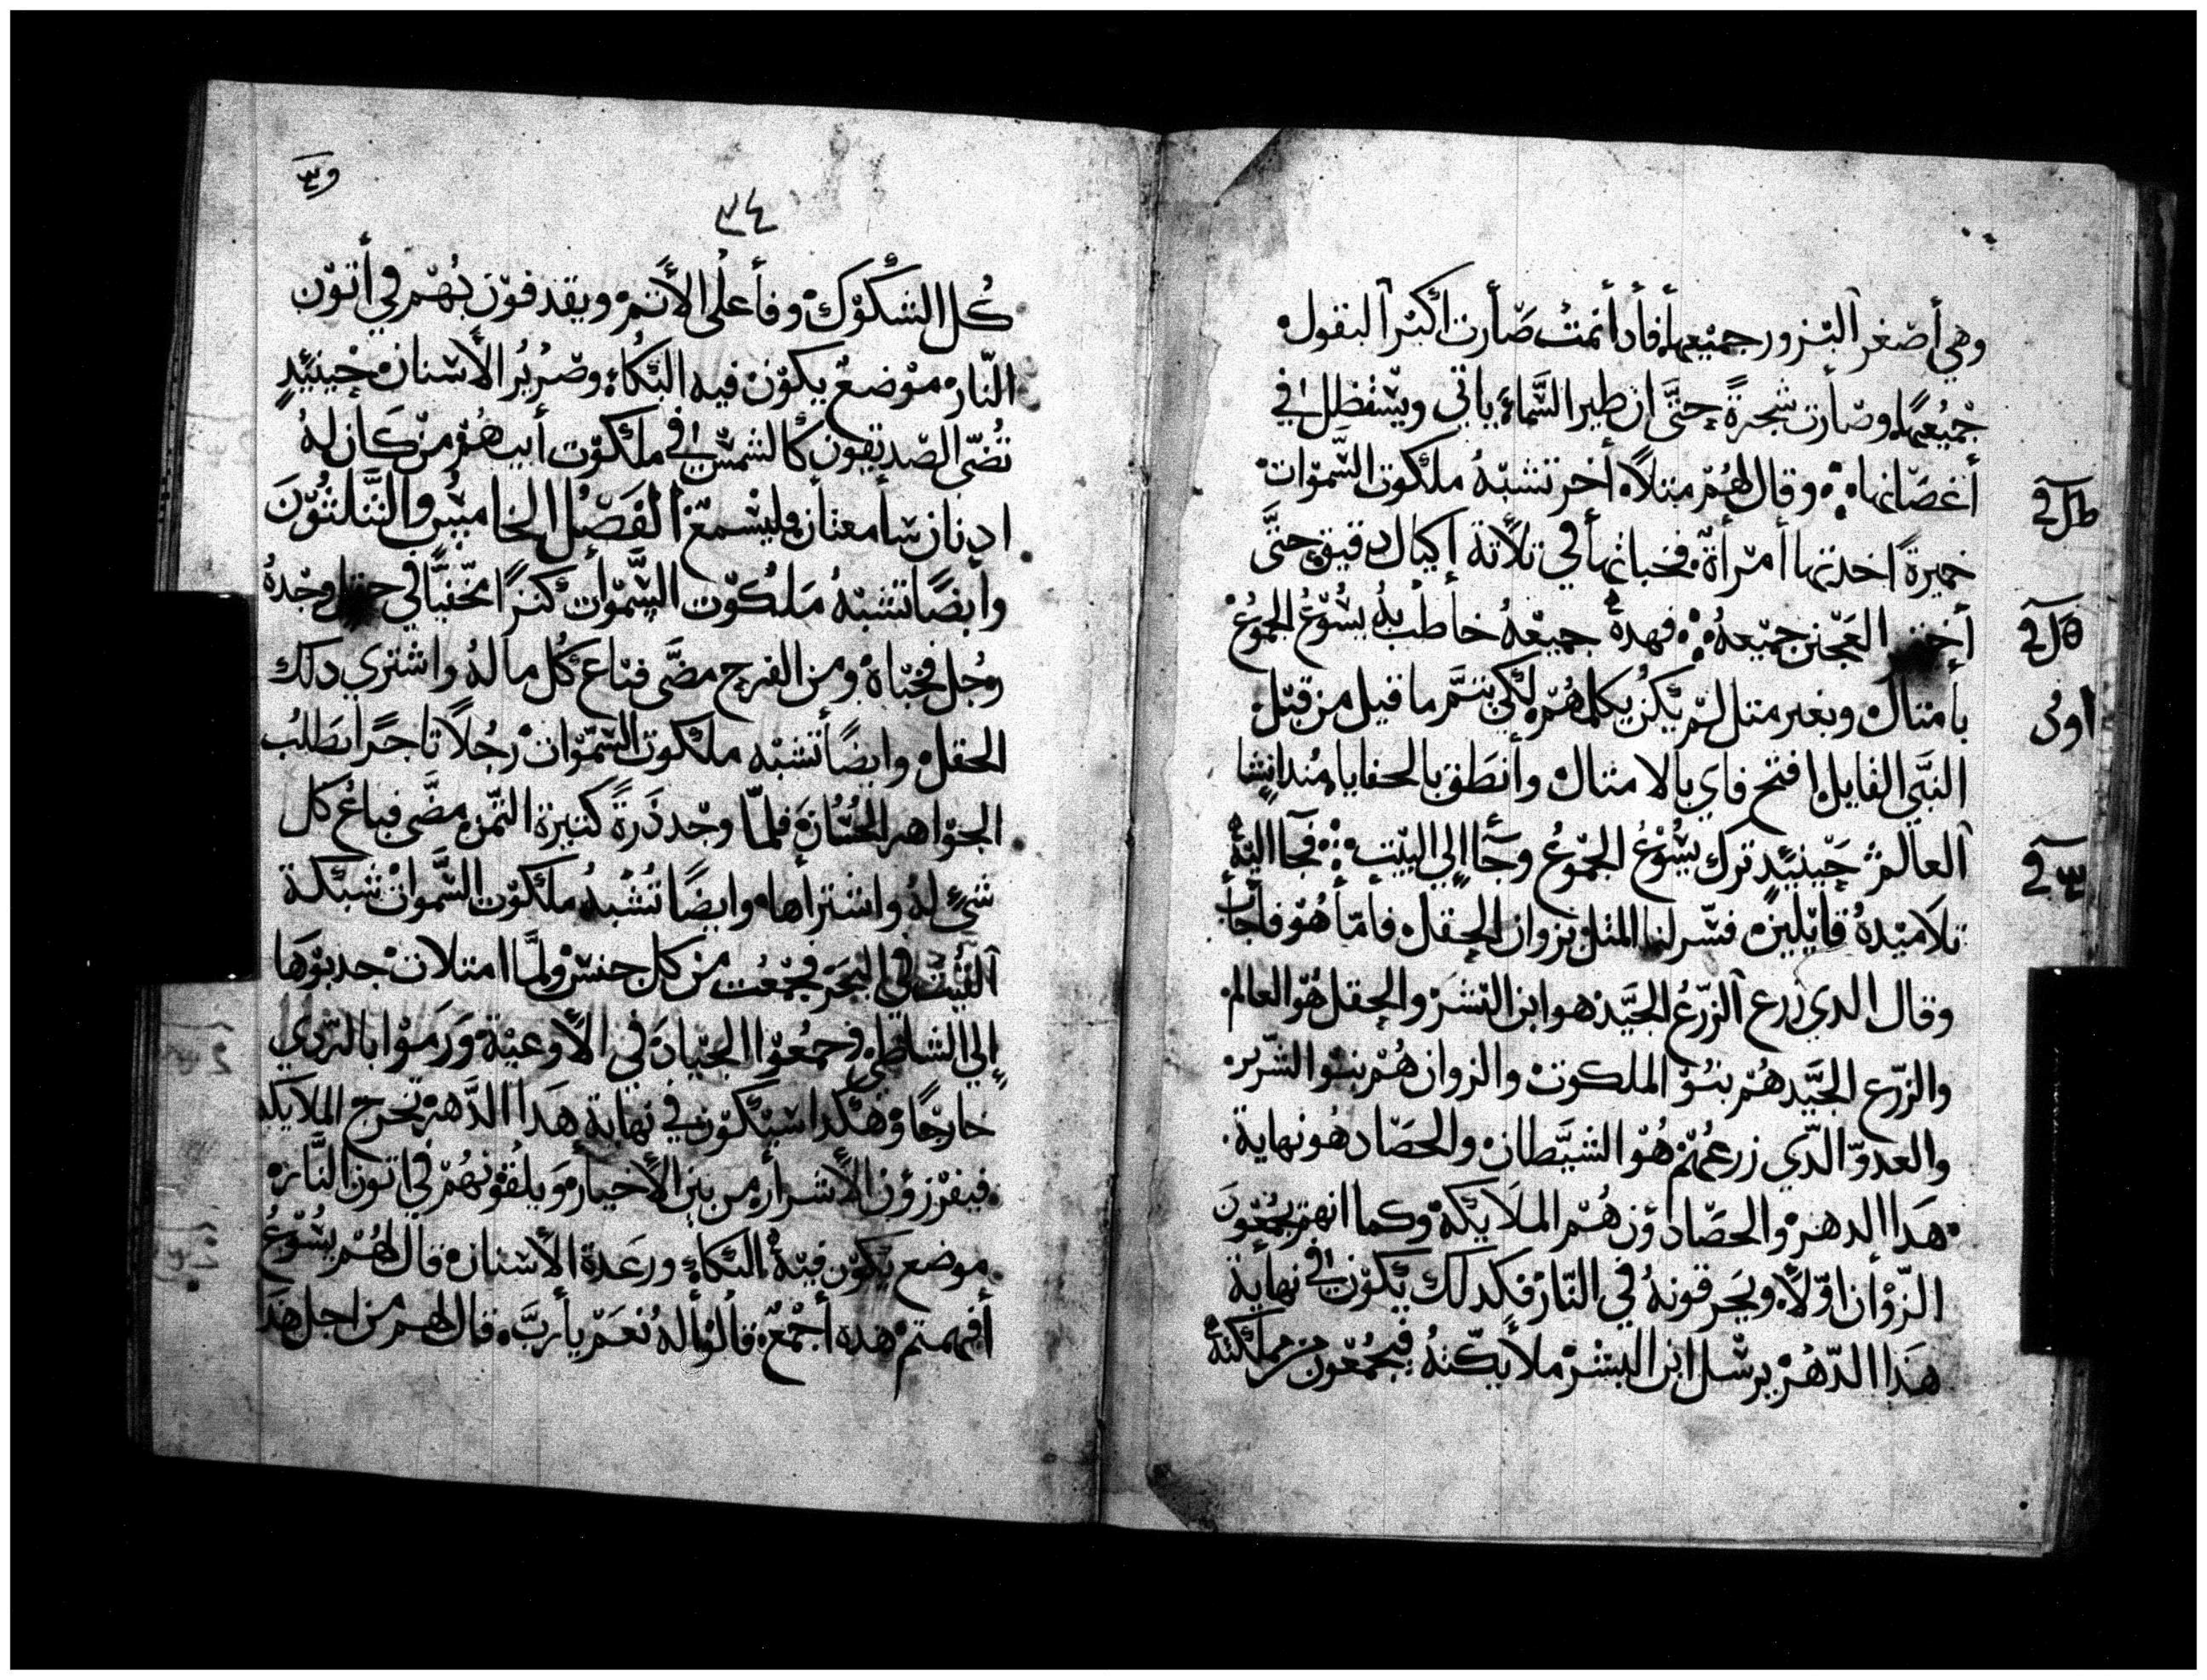 وهي أصغر البزور جميعها فأدا أنمت صّارت اكبر البقول
جميعها وصّارت شجرةً حتَّى ان طير السَّماء ياتي ويستظل في
أغصانها وقال لهُم مثلاً أخر تشبهُ ملكوت السّموات
خميرةً اخدتها أمرأة فخباتها في تلاتة أكيال دقيق حتَّى
أختمر العجين جميعهُ فهده جميعهُ خاطب به يسُوّعُ الجموعُ
بأمتال وبغير متل لم يكن يكلمهُم لكي يتمَّ ما قيل من قبل
النبَّي القايل افتح فاي بالامتال وأنطق بالخفايا مُند انشا
العالم حينيدٍ ترك يسُوّعُ الجموعُ وجاً إلي البيت فجا اليه
تلاميدهُ قايلين فسّر لنا المتل بزوان الحقل فامّا هُو فاجاب
وقال الدي زرع الزّرعُ الجيَّد هو ابن البشر والحقل هُو العالم
والزّرع الجيَّد هُم بنو الملكوت والزوان هُم بنو الشّرير
والعدوّ الدّي زرعهُم هُو الشيَّطان والحصّاد هُو نهاية
هَدا الدهر والحصّادوُن هُم الملايكة وكما انهم يجمعُون
الزّوأن اوّلاً ويحرقونهُ في النّار فكدلك يكون في نهاية
هَدا الدّهُر يرسل ابن البشر ملايكتهُ فيجمُعون من مملكته
ط ل ق
ل ق
اوئ
ق
٣٤
كُل الشكوك وفأعلى الأتم ويقدفون بهُم في أتون
النّار موضع يكون فيه البُكاء وصُريرُ الأسنان حينيدٍ
تُضّي الصّديقون كالشمس في ملكوت أبيهُم من كان لهُ
ادنان سامعتان فليسمع الفَصّلُ الخامسُ والتَّلتُونَ
وأيضاً تشبهُ مَلكوت السَّموات كنزاً مخفيّاً في حقل وجدهُ
رجُل فخبّاهُ ومن الفرح مضَى فباع كُل ما لهُ واشتري دلك
الحقل وايضاً تشبه ملكوت السّموات رجُلاً تاجراً يطلُب
الجواهر الحُسّان فلمّا وجد دُرةً كتيرة التّمن مضَّى فباعُ كل
شيً لهُ واشتراها وايضاً تُشبهُ ملكوت السَّموات شبكة
القيت في البحر فجمعُت من كل جنس ولمَّا امتلات جدبوهَا
إلي الشاطي وجمعُوا الجيادَ في الأوعية وَرَموا بالرّدي
خارجًا وهكدا سيكون في نهاية هَدا الدَّهر تخرج الملايكه
فيفرزوُن الأشرار من بين الأخيار وَيلقُونهُم في اتون النَّار
موضع يكون فيه البكاء ورعَدة الأسنان قال لهُم يسُوّعُ
أفهمتم هده أجمعُ قالوا لهُ نعَم يأربَّ قال لهم من اجل هَدا